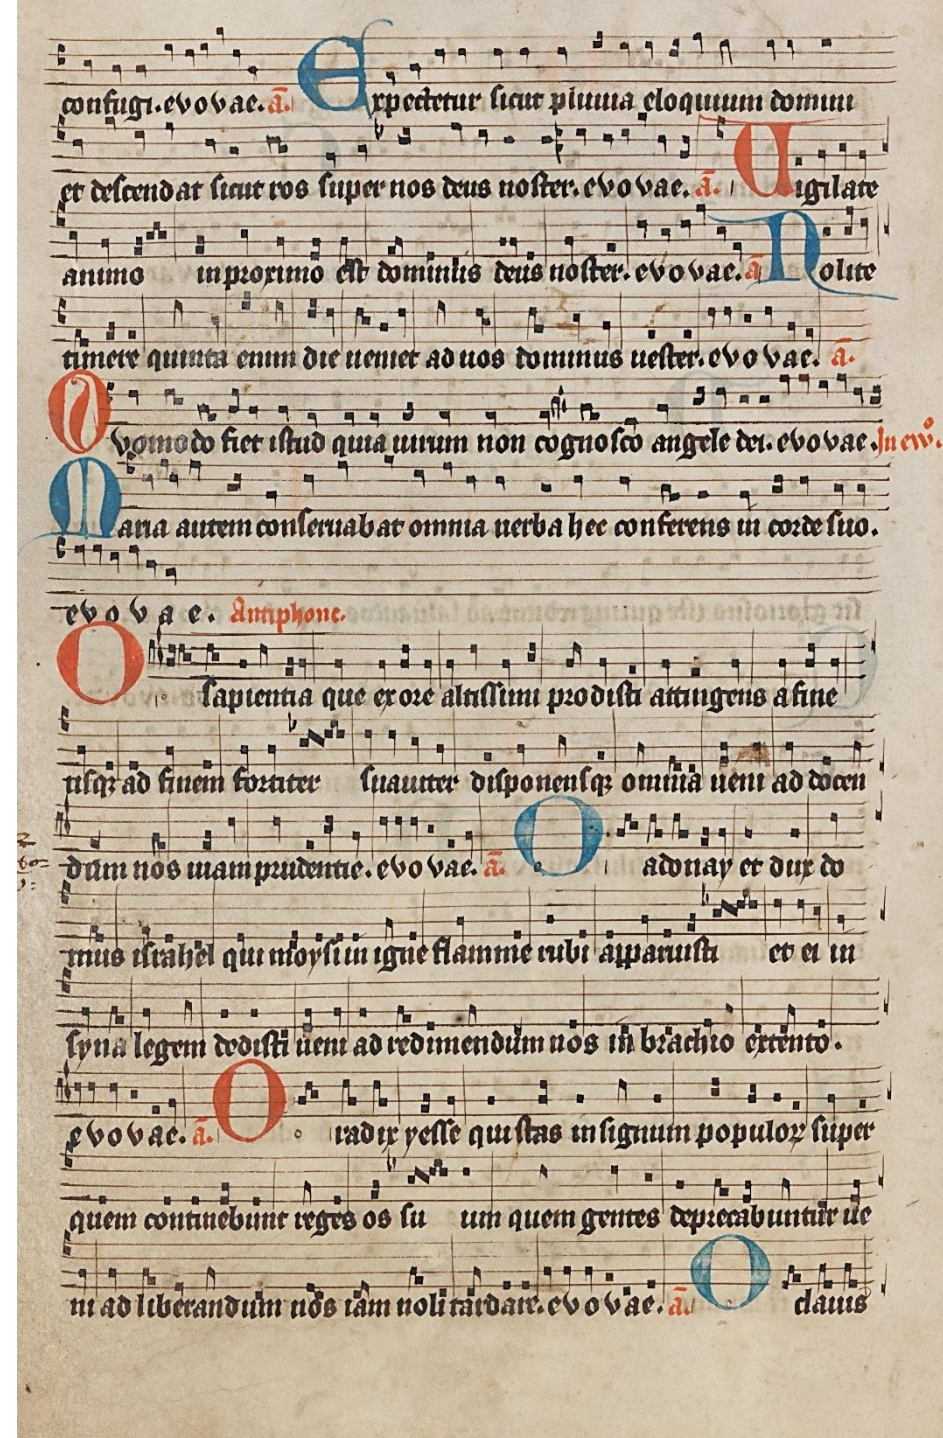 confugi. evovae. ā. Expectetur sicut pluuia eloquium domini
et descendat sicut ros super nos deus noster. evovae. ā. Vigilate
animo in proximo est dominus deus noster. evovae. ā Nolite
timere quinta enim die ueniet ad uos dominus uester. evovae. ā.
Quomodo fiet istud quia uirum non cognosco angele dei. evovae. In ew̄.
Maria autem conseruabat omnia uerba hec conferens in corde suo.
evovae. Antiphone.
O sapientia que ex ore altissimi prodisti attingens a fine
usqꝫ ad finem fortiter suauiter disponensqꝫ omnia ueni ad docen
dum nos uiam prudentie. evovae. ā. O adonay et dux do
mus israhel qui moysi in igne flamme rubi apparuisti et ei in
syna legem dedisti ueni ad redimendum nos in brachio extento.
evovae. ā. O radix yesse qui stas in signum populoꝝ super
quem continebunt reges os suum quem gentes deprecabuntur ue
ni ad liberandum nos iam noli tardare. evovae. ā. O clauis